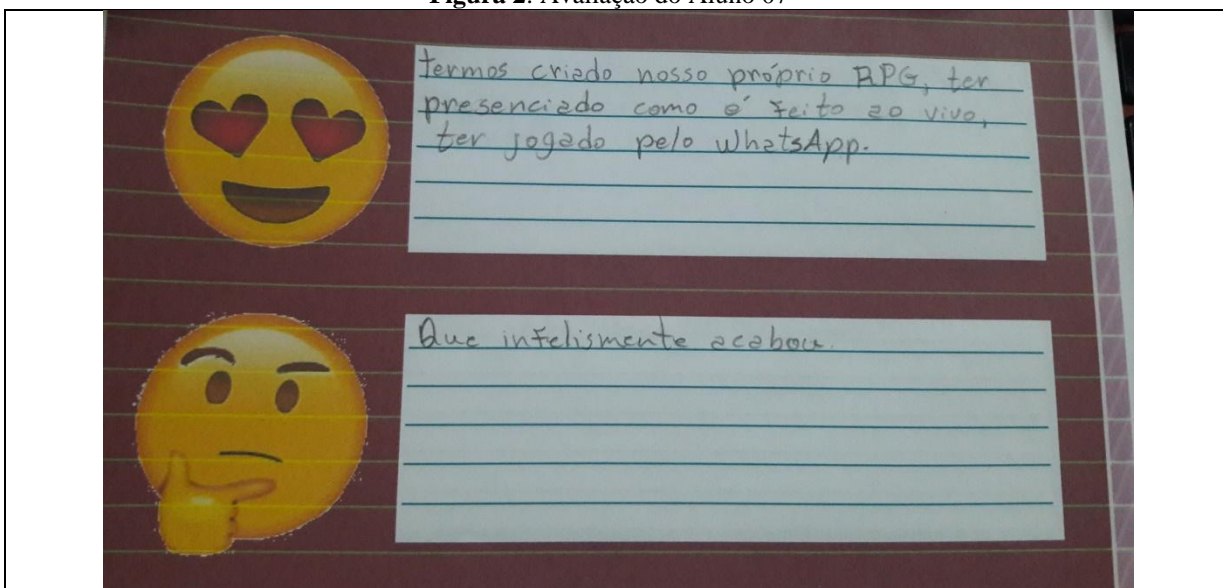 Figura 2: Avaliação do Aluno 07
termos criado nosso próprio RPG, ter
presenciado como é feito ao vivo,
ter jogado pelo WhatsApp.
Que infelismente acabou.